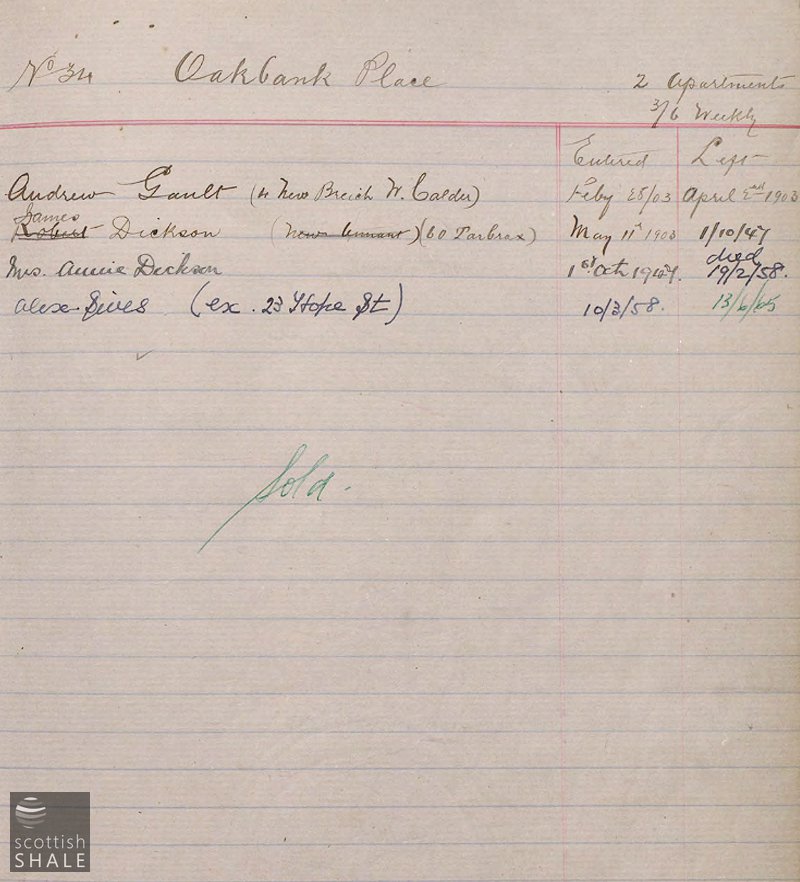 No 34 Oakbank Place
2 Apartments
3/6 Weekly
Entered Left
Andrew Gault (4 New Breich W. Calder) Feby 28/03 April 2nd 1903
James
Robert Dickson (New Annant) (60 Tarbrax) May 11th 1903 1/10/47
Mrs. Annie Dickson 1st Oct 1947. died 19/2/58.
Alex Sives (ex. 23 Hope St) 10/3/58. 13/6/65
Sold.
scottish
SHALE